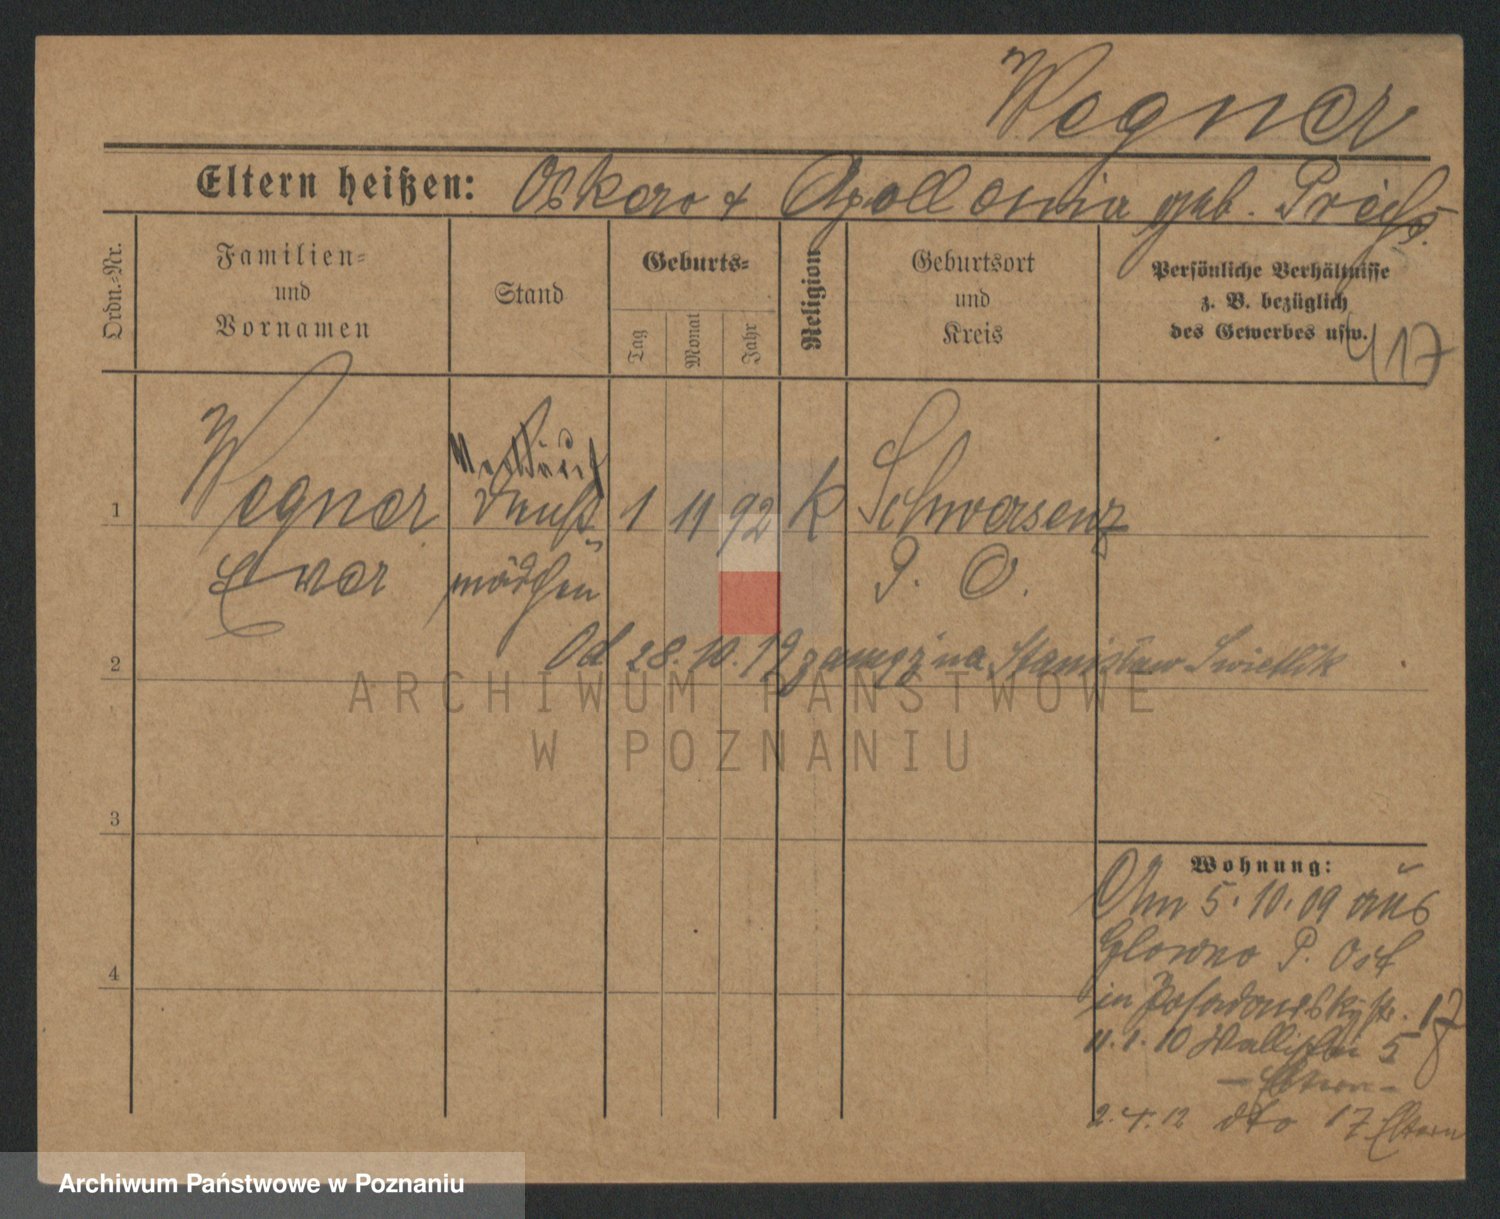 Wegner
Eltern heißen: Oskar + Apollonia geb. Preiß.
Ordn.-Nr.
Familien-
und
Vornamen
Stand
Geburts-
Tag
Monat
Jahr
Religion
Geburtsort
und
Kreis
Persönliche Verhältnisse
z. B. bezüglich
des Gewerbes usw.
417
1 Wegner Dienst- 1 11 92 k Schwersenz
Ewa mädchen P. O.
2 Od 28. 10. 19 zamężna Stanisław Swietlik
ARCHIWUM PAŃSTWOWE
W POZNANIU
3
Wohnung:
Am 5.10.09 aus
Glowno P. Ost
4
in Posadowskystr. 17
11.1.10 Wallischei 5
- Eltern -
2.4.12 dto 17 Eltern
Archiwum Państwowe w Poznaniu